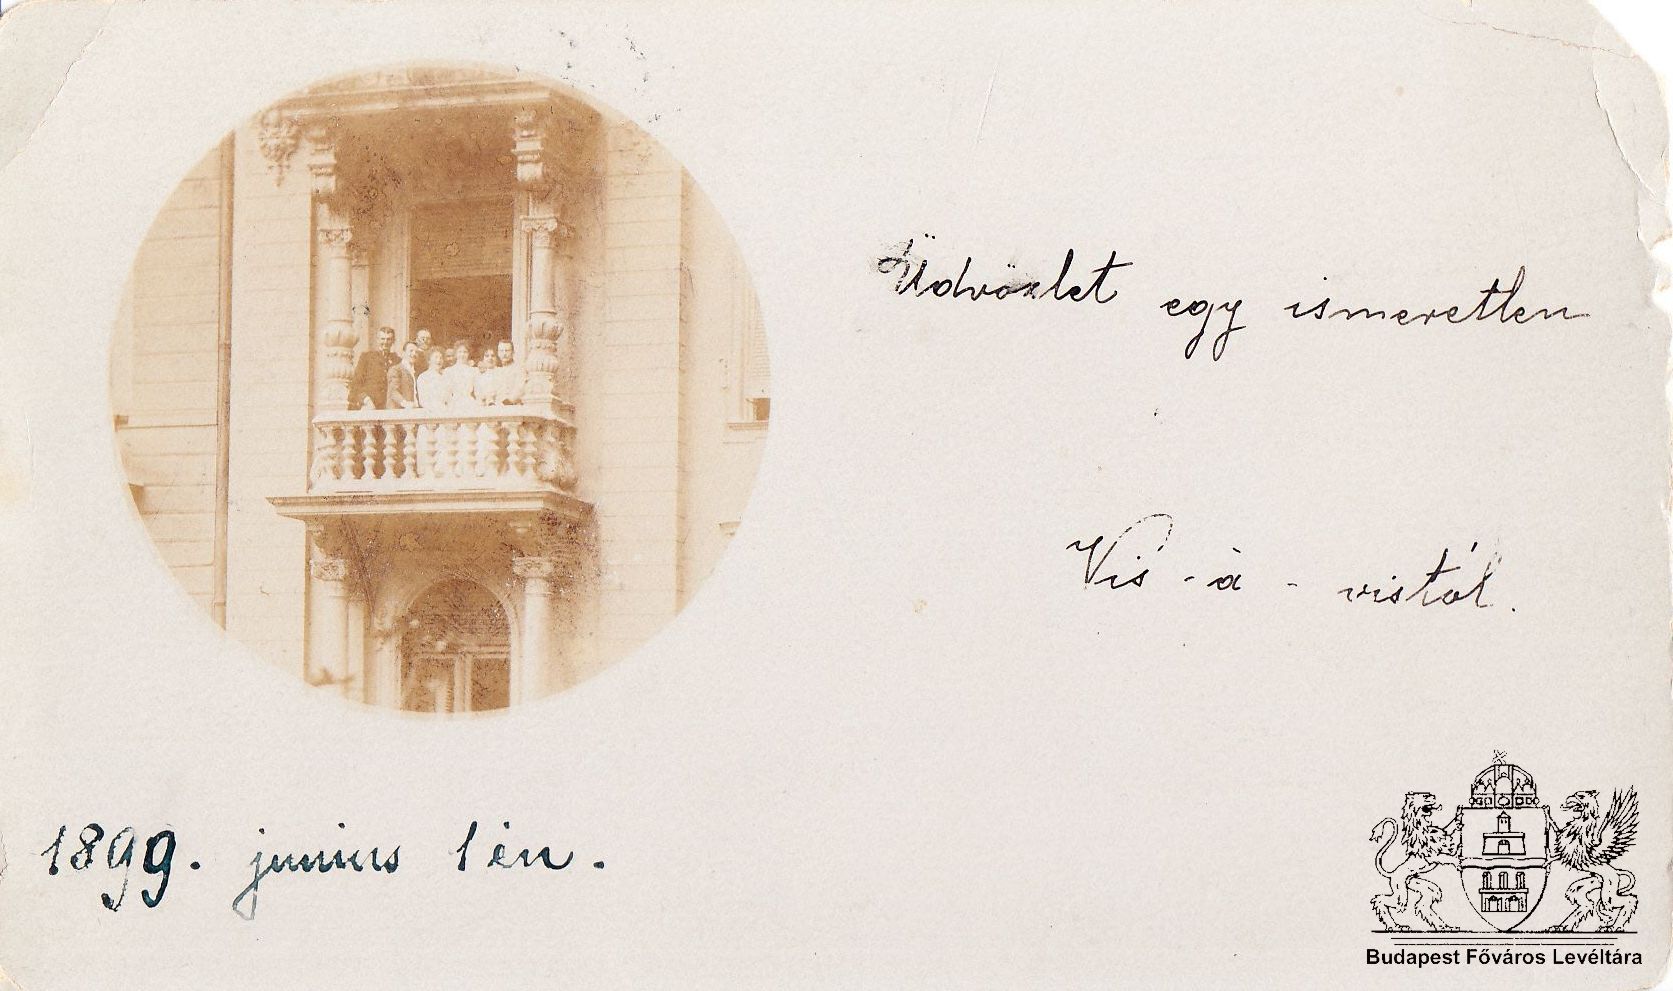 Üdvözlet egy ismeretlen
Vis-à-vistól.
1899. junius 1én.
Budapest Főváros Levéltára